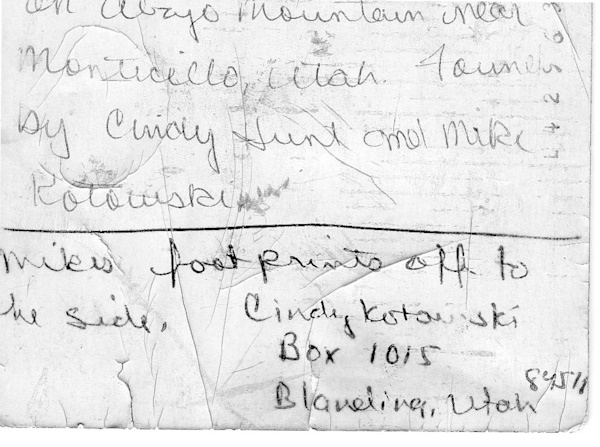 on Abajo Mountain near
Monticello, Utah. Found
by Cindy Hunt and Mike
Kotowski.
Mikes footprints off to
he side.
Cindy Kotowski
Box 1015
Blanding, Utah 84511